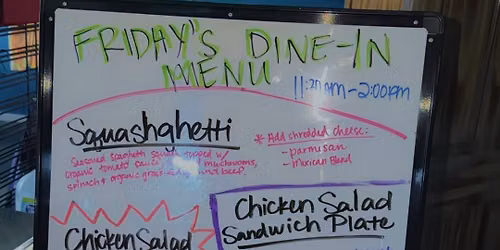 FRIDAY'S DINE-IN
MENU
11:30AM-2:00PM
Squashghetti
Seasoned spaghetti squash topped w/
organic tomato sauce mushrooms,
spinach & organic grass beef,
* Add shredded cheese:
- parmisan
- Mexican Blend
Chicken Salad
Sandwich Plate
Chicken Salad